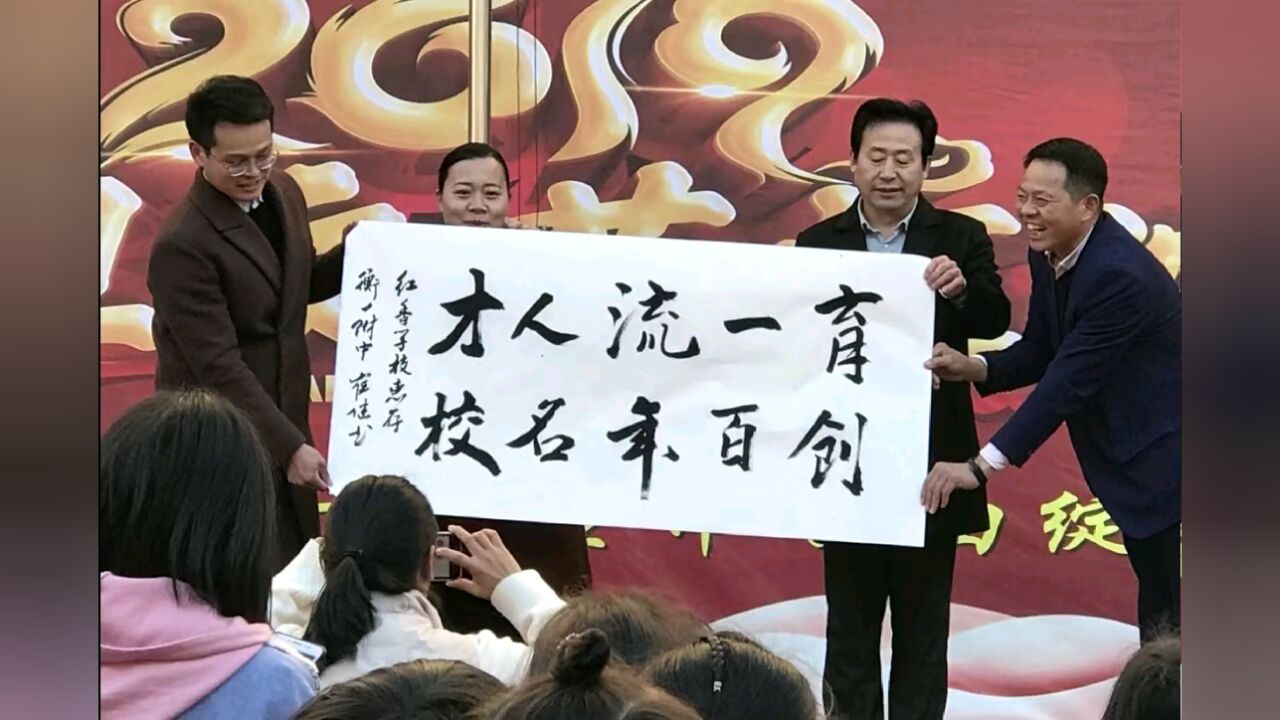 2019
育一流人才
创百年名校
红香学校惠存
衡一附中
山绽